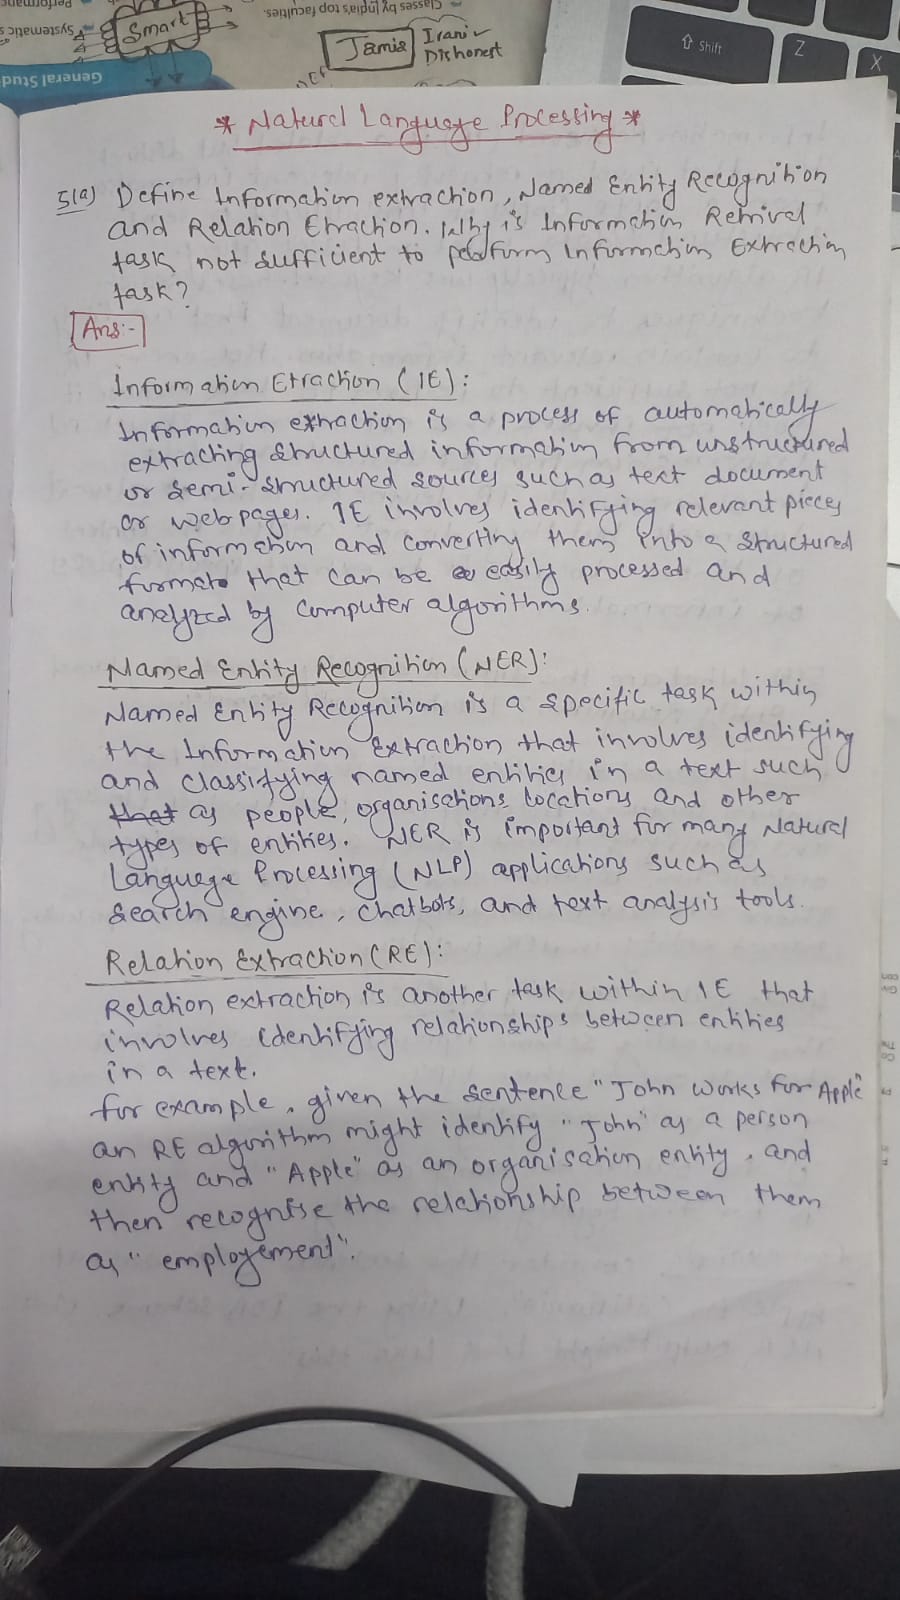 Performanc
Systematic s
Smart
General Stud
Classes by India's top faculties.
Jamia
Irani
Dishonest
DEF
⇧ Shift
Z
X
* Naturel Language Processing *
5(a) Define Information extraction, Named Entity Recognition
and Relation Etraction. Why is Information Retrival
task not sufficient to perform Information Extraction
task?
Ans:-
Information Etraction (IE):
Information extraction is a process of automatically
extracting structured information from unstructured
or semi-structured sources such as text document
or web pages. IE involves identifying relevant pieces
of information and converting them into a structured
formate that can be easily processed and
analyzed by computer algorithms.
Named Entity Recognition (NER):
Named Entity Recognition is a specific task within
the Information Extraction that involves identifying
and classifying named entities in a text such
that as people, organisations, locations and other
types of entities. NER is important for many Natural
Language Processing (NLP) applications such as
search engine, chatbots, and text analysis tools.
Relation Extraction (RE):
Relation extraction is another task within IE that
involves identifying relationships between entities
in a text.
for example, given the sentence "John works for Apple"
an RE algorithm might identify "John" as a person
entity and "Apple" as an organisation entity, and
then recognise the relationship between them
as "employement".